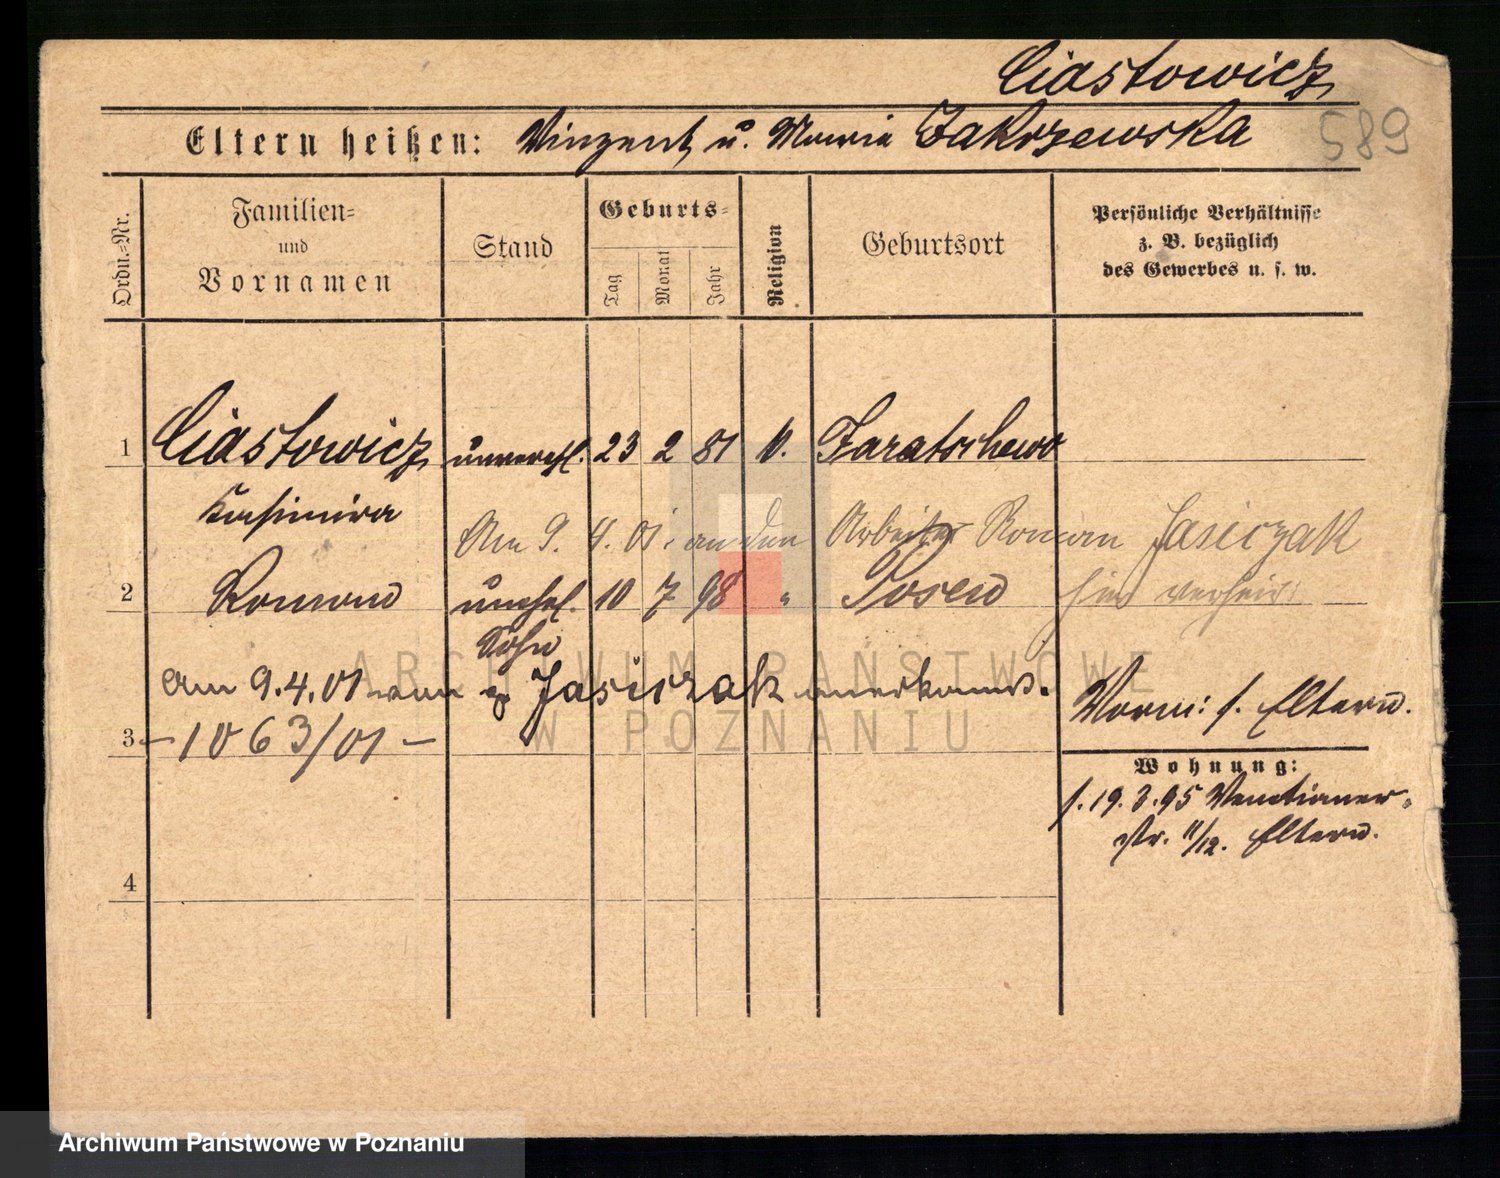 Ciastowicz
589
Eltern heißen: Vinzent u. Maria Zakrzewska
Ordn.=Nr.
Familien=
und
Vornamen
Stand
Geburts=
Tag
Monat
Jahr
Religion
Geburtsort
Persönliche Verhältnisse
z. B. bezüglich
des Gewerbes u. s. w.
1 Ciastowicz unvereh. 23 2 81 k. Zaratschewo
Kasimira
Am 9. 4. 01. an den Arbeiter Roman Jasiczak
2 Roman unehel. 10 7 98 " Posen hier verheir.
Sohn
Am 9.4.01 von Jasiczak anerkannt.
Vorm: s. Eltern.
3 -1063/01-
Wohnung:
s. 19.3.95 Venetianer-
str. 11/12. Eltern.
4
ARCHIWUM PAŃSTWOWE
W POZNANIU
Archiwum Państwowe w Poznaniu